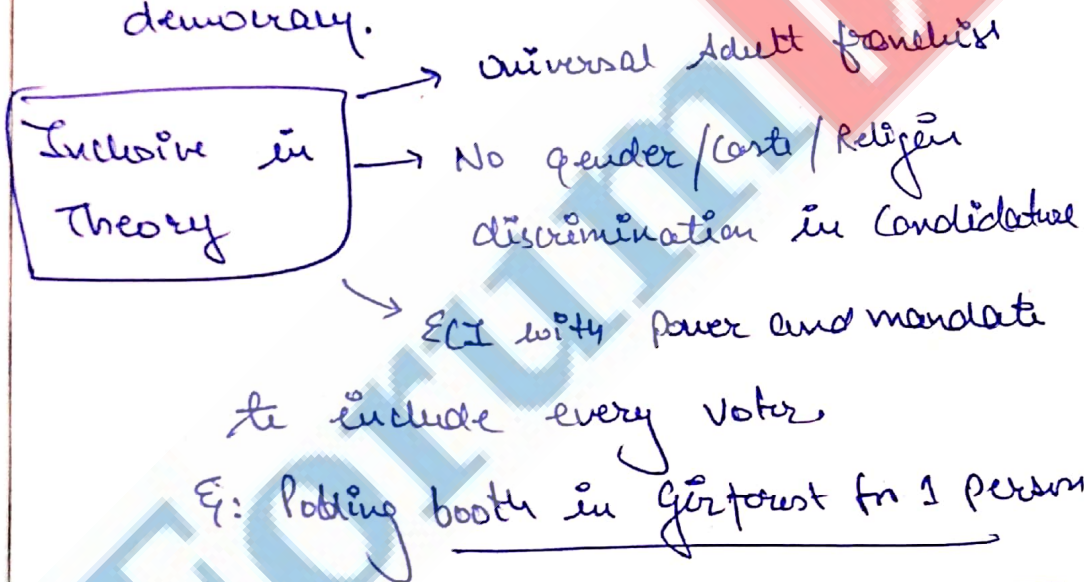 democracy.
Inclusive in
Theory
→ Universal Adult franchise
→ No gender/Caste/Religion
discrimination in Candidature
→ ECI with power and mandate
to include every voter
Eg: Polling booth in Gir forest for 1 person
Forum